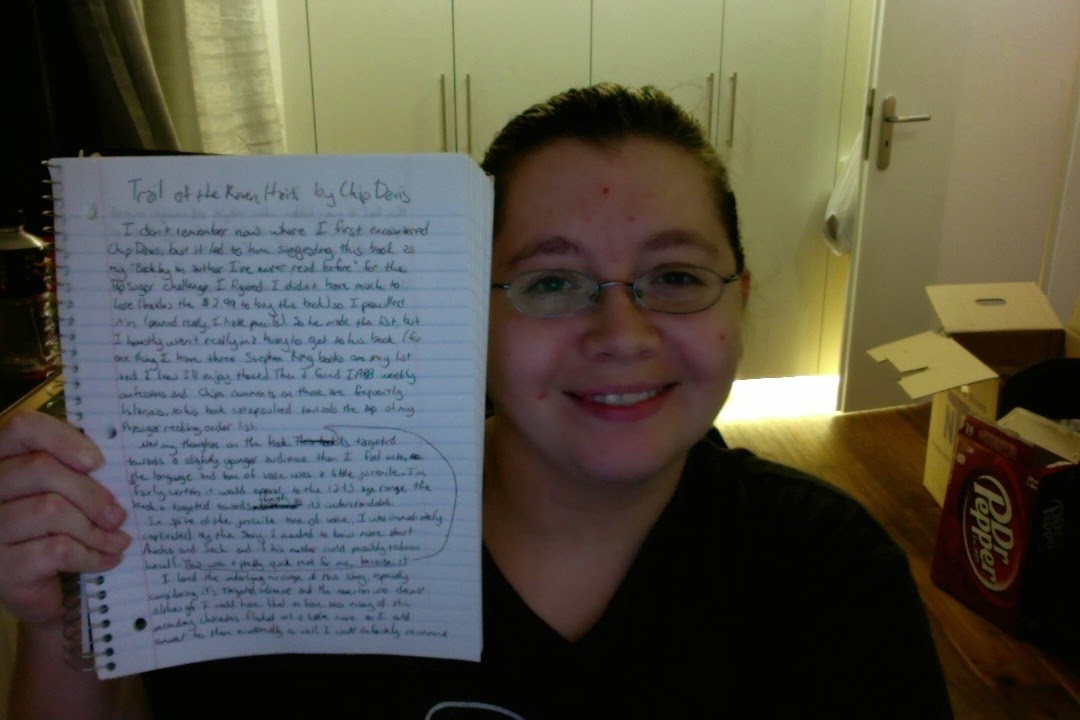 Trail of the Raven Hairs by Chip Davis
I don't remember now where I first encountered
Chip Davis, but it led to him suggesting this book as
my "Book by an author I've never read before" for the
PopSugar challenge. I figured I didn't have much to
lose (besides the $2.99 to buy the book) so I pencilled
it in (penned really, I hate pencils). So he made the list, but
I honestly wasn't really in a hurry to get to his book (for
one thing I have three Stephen King books on my list
and I know I'll enjoy those). Then I found weekly
confessions and Chip's comments on those are frequently
hilarious, so his book catapulted towards the top of my
Popsugar reading order list.
Now my thoughts on the book. is targeted
towards a slightly younger audience than I feel
the language and tone of voice was a little juvenile. I'm
fairly certain it would appeal to the 12-15 age range the
book is targeted towards so it's understandable.
In spite of the juvenile tone of voice, I was immediately
captivated by the story. I needed to know more about
and Jack and if his mother could possibly redeem
herself. This was a pretty quick read for me, because it
I loved the underlying message of this story, especially
considering it's targeted audience and the
although I would have liked to have seen many of the
secondary characters fleshed out a little more so I could
connect to them emotionally as well. I would definitely recommend
DR Pepper
Dr Pepper
24